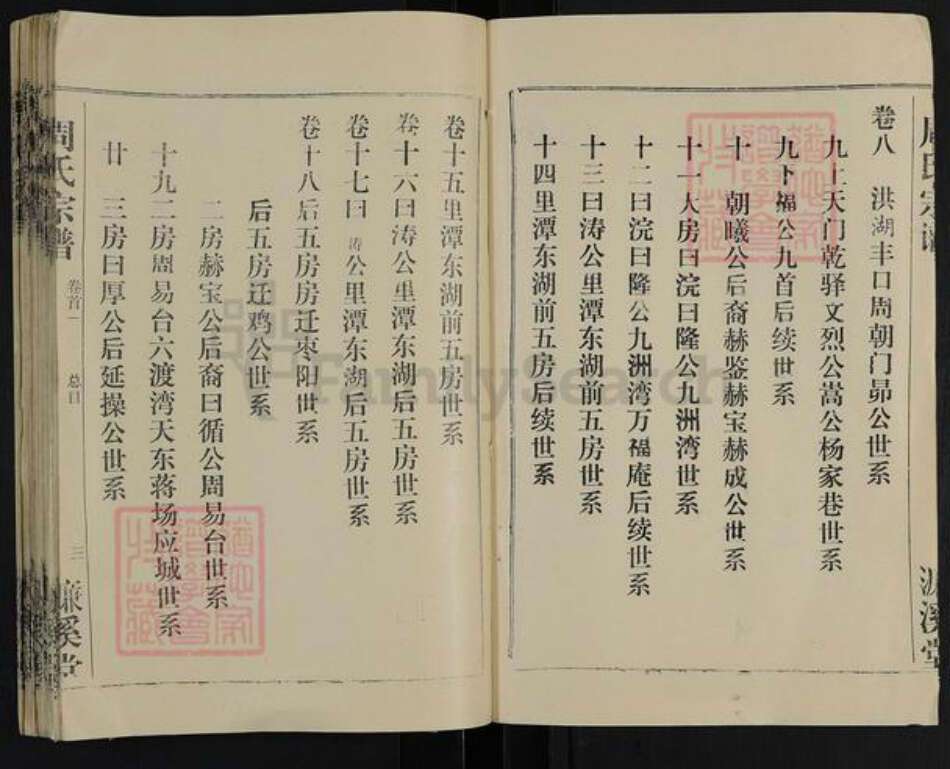 周氏宗谱
濂溪堂
卷八 洪湖丰口周朝门昴公世系
九上天门乾驿文烈公嵩公杨家巷世系
九卜福公九首后续世系
十 朝曦公后裔赫鉴赫宝赫成公世系
十一大房曰浣曰隆公九洲湾世系
十二曰浣曰隆公九洲湾万福庵后续世系
十三曰涛公里潭东湖前五房世系
十四里潭东湖前五房后续世系
卷十五里潭东湖前五房世系
卷十六曰涛公里潭东湖后五房世系
卷十七曰涛公里潭东湖后五房世系
卷十八后五房房迁枣阳世系
后五房迁鸡公世系
二房赫宝公后裔曰循公周易台世系
十九二房周易台六渡湾天东蒋场应城世系
廿 三房曰厚公后延操公世系
周氏宗谱
卷首一
总目
三
濂溪堂
FamilySearch